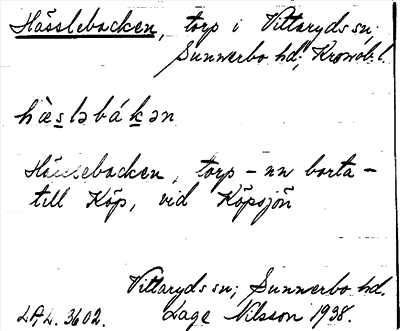 Hässlebacken, torp i Vittaryds sn;
Sunnerbo hd; Kronob. l.
hæ̀sləbákən
Hässlebacken, torp – nu borta –
till Köp, vid Köpsjön
Vittaryds sn; Sunnerbo hd.
LAL. 3602. Lage Nilsson 1938.